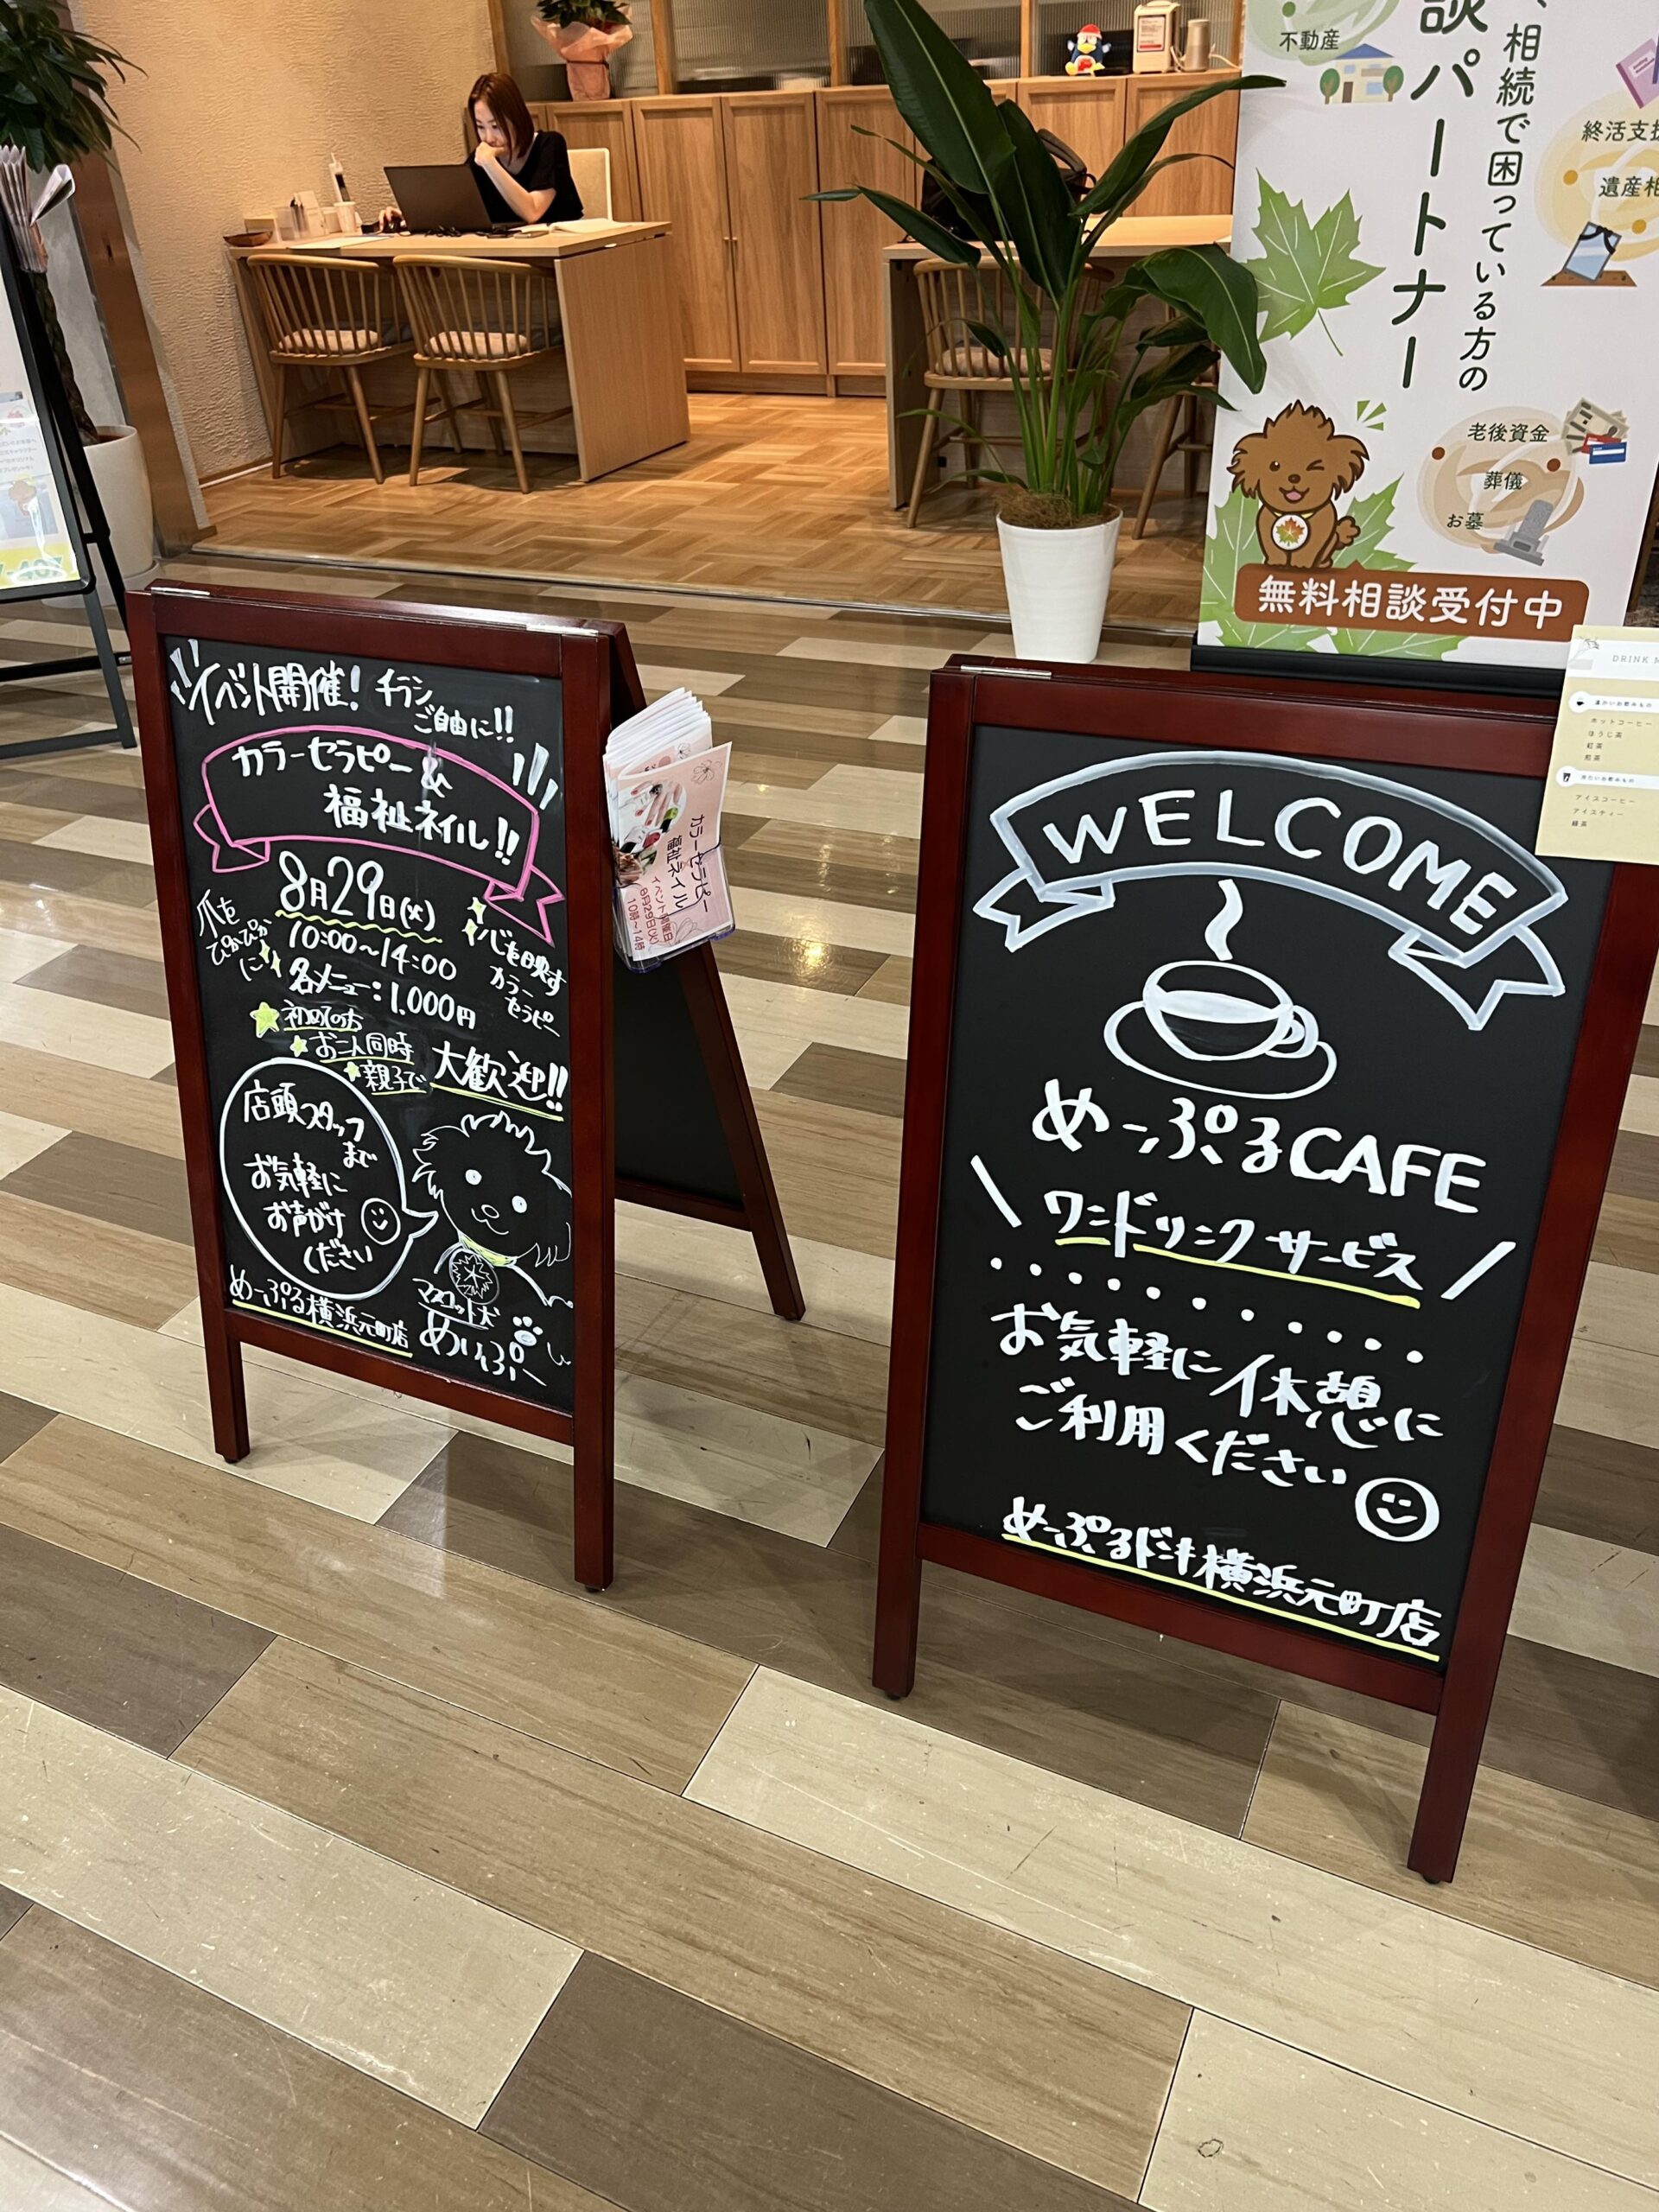 イベント開催! チラシ
ご自由に!!
カラーセラピー&
福祉ネイル!!
8月29日(火)
10:00~14:00
各メニュー:1,000円
爪を
ぴかぴか
に
心を映す
カラー
セラピー
初めてのお
お二人同時
親子で
大歓迎!!
店頭スタッフ
まで
お気軽に
お声がけ
ください
マスコット犬
めいぷー
めーぷる横浜元町店
カラーセラピー
福祉ネイル
イベント開催日
8月29日(火)
10時~14時
WELCOME
めーぷるCAFE
ワンドリンクサービス
お気軽に休憩に
ご利用ください
めーぷるドーナ横浜元町店
不動産
相続で困っている方の
談パートナー
終活支援
遺産相
老後資金
葬儀
お墓
無料相談受付中
DRINK M
温かいお飲みもの
ホットコーヒー
ほうじ茶
紅茶
煎茶
冷たいお飲みもの
アイスコーヒー
アイスティー
緑茶